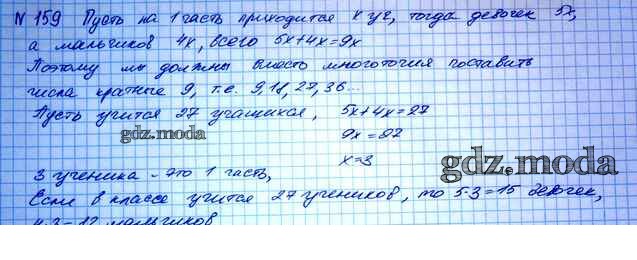 № 159 Пусть на 1 часть приходится x уч, тогда девочек 5x,
а мальчиков 4x, всего 5x+4x=9x
Поэтому мы должны вместо многоточия поставить
числа кратные 9, т.е. 9, 18, 27, 36...
Пусть учится 27 учащихся, 5x+4x=27
gdz.moda
9x=27
x=3
3 ученика - это 1 часть,
gdz.moda
Если в классе учится 27 учеников, то 5·3=15 девочек,
4·3=12 мальчиков